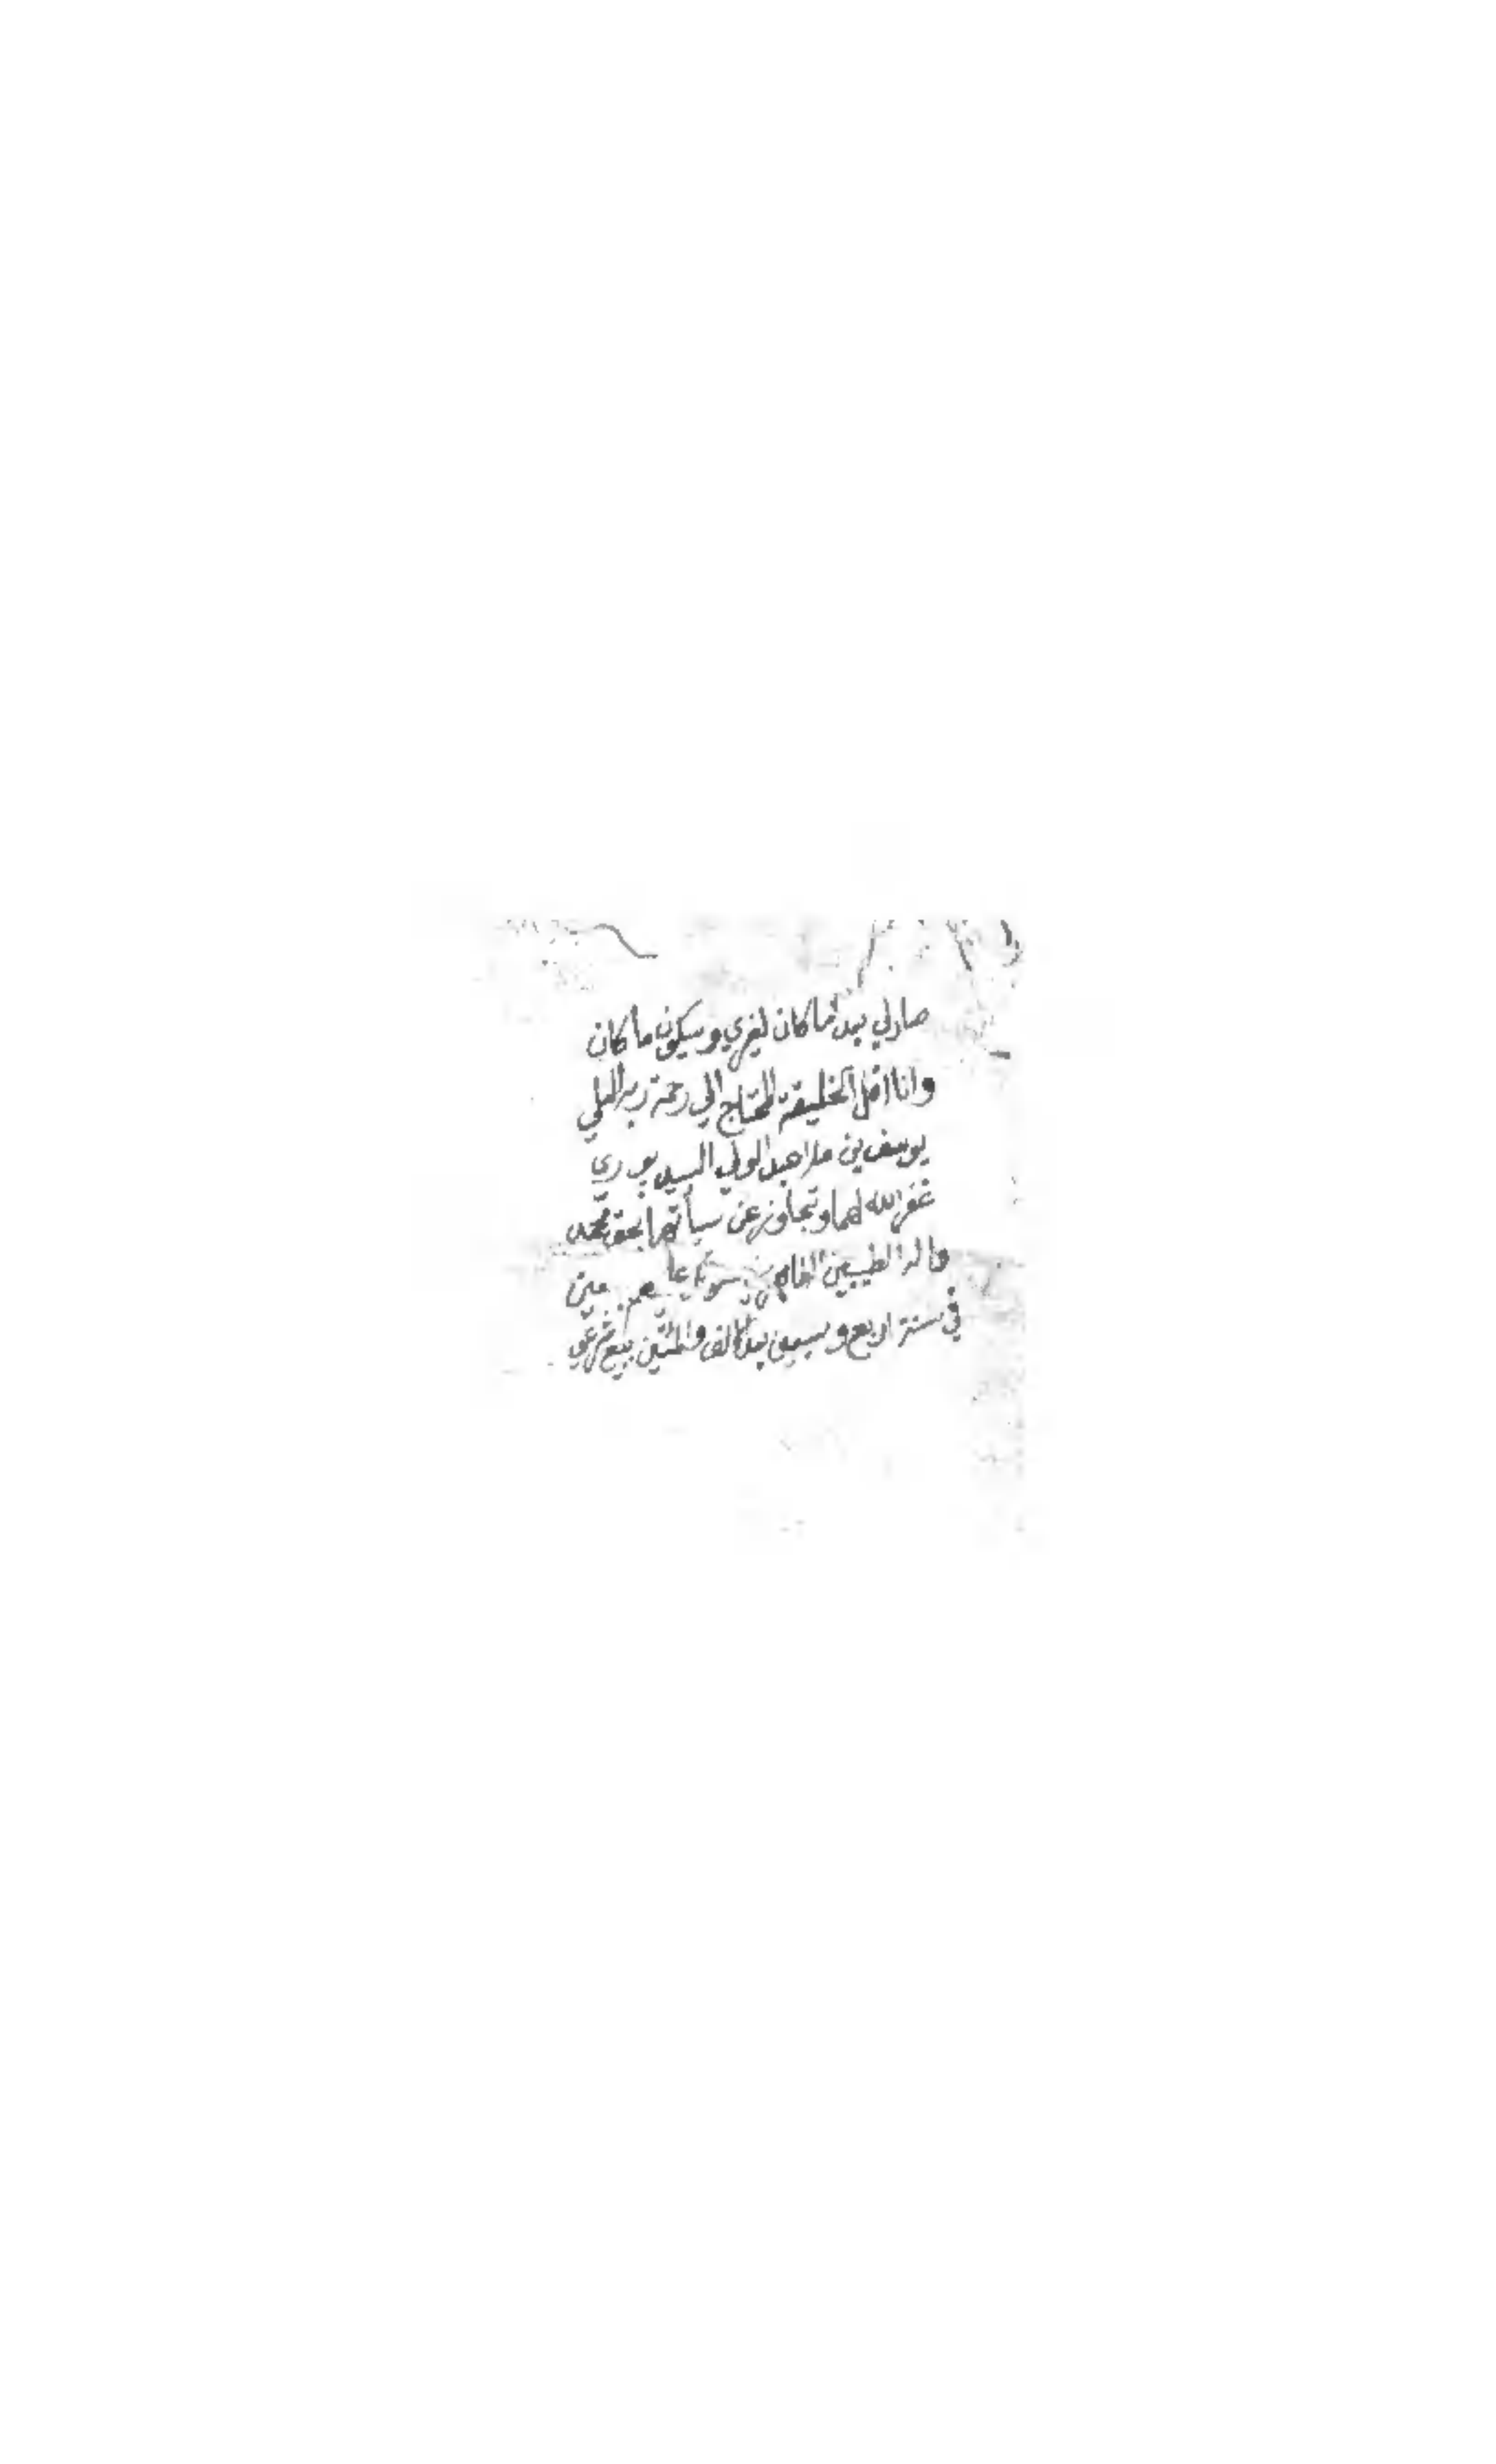 صار لي بعد ما كان لغيري وسيكون ما كان
وانا اقل الخليقة المحتاج الي رحمة ربه العلي
يوسف بن ملا عبد الولي السيد بوري
غفر الله لهما وتجاوز عن سيأتهما بحق محمد
واله الطيبين
في سنة اربع وسبعين بعد الالف والمئتين بيع شرعي